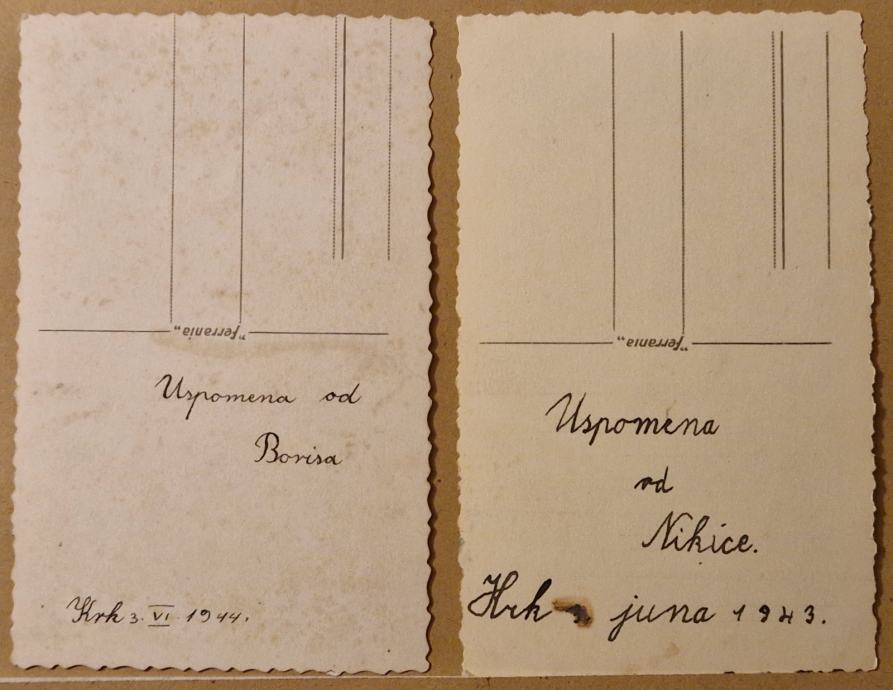 "ferrania"
Uspomena od
Borisa
Krk 3. VI. 1944.
"ferrania"
Uspomena
od
Nikice.
Krk 3. juna 1943.